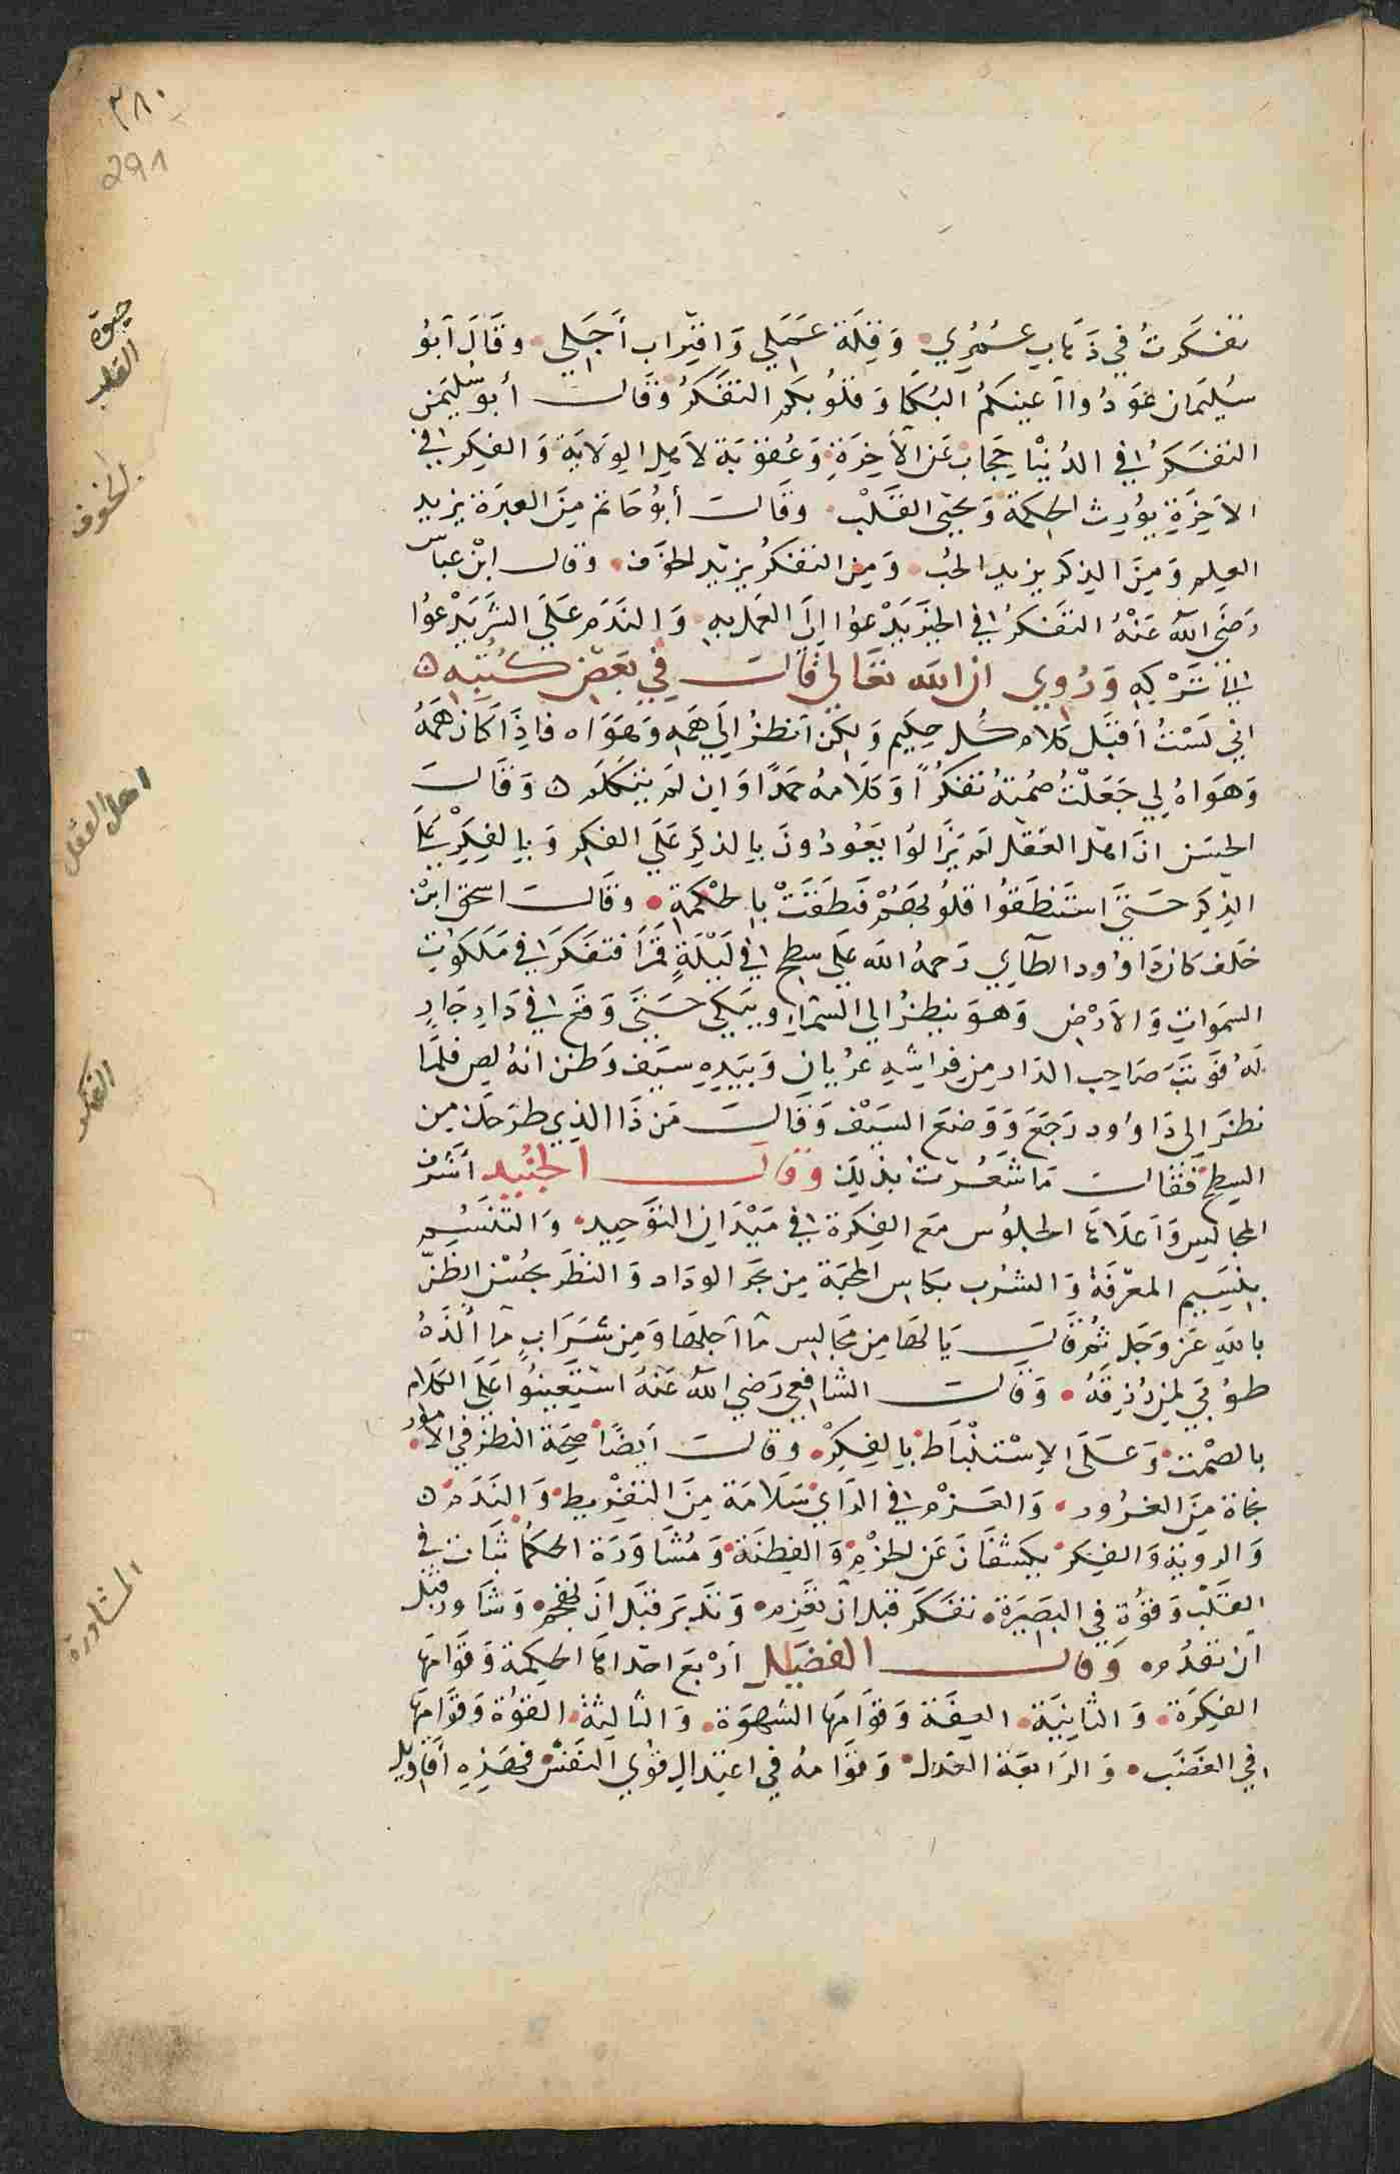 ٣٨٠
291
تفكرتُ في ذهاب عُمُرِي وَقِلَة عَمَلي وَاقتِراب أَجَلي وقَالَ أبوُ
حيوة القلب
سُليَمان عَوّدُوا أعينكُم البُكا وَقلُوبكم التفَكرُ وَقَالَ أبو سُليمن
التفَكرُ في الدُنيْا حِجَاب عَن الآخِرَةِ وَعُقوبَة لاهلِ الوِلَايَة وَالفِكر في
الآخِرَةِ يوُرِث الحِكمَة وَيحيي القَلْب وقَالَ أبوُ حَاتم مِنَ العِبرَة يزيد
الخوف
العِلم وَمِنَ الذِكرِ يزيد الحُب وَمِن التفَكرُ يزيد الخوَف وَقال ابْن عباس
رَضَي اللهُ عَنْهُ التفَكرُ في الخَير يَدْعوا إلَى العمَل بهِ وَالنَدَم عَلَى الشَر يَدْعوُا
الي تَرْكِهِ وَرُوِي ان الله تعَالي قَالَ في بَعض كُتبِه
اني لسْتُ أقبَل كلام كُل حكِيم وَلكِن أنظرُ إلَي هَمِه وَهَوَاه فاذَا كَان هَمهُ
وَهَوَاهُ لِي جَعَلْتُ صُمْتهُ تفكرُاً وَكلَامهُ حَمَدًا وَان لمَ يَتكَلم وَقَالَ
اهل العقل
الحسَن ان اهل العَقل لم يزَالوُا يَعُودُونَ بِالذِكرِ عَلَي الفِكر وَبالِفِكرْ عَلَي
الذِكرَ حَتيَ استَنطَقوُا قلوُبهَمُ فنَطَقَتْ بِالحْكمَةِ وقَالَ اسحق ابْن
خلَف كان دَاوُود الطَآيِ رَحمهُ الله عَلَى سطح في لَيْلَةٍ قمَرَا فتفَكَرَ في مَلكوُتِ
السَموَاتِ وَالارَضِ وَهوَ ينظرُ الي السّمَاءِ ويَبكي حَتيَ وَقَع في دَارِ جَارٍ
لَهُ فوَثبَ صَاحِب الدَار مِن فراشِهِ عرُيان وَبيَدِهِ سَيف وَظن انهُ لِص فلمَا
الفكر
نظرَ الى دَاوُود رَجَعَ وَوَضَعَ السَيْف وَقَالَ مَن ذَا الذِي طرَحَك مِن
السِطح فقَالَ مَا شعُرْت بذَلِك وقَالَ الجُنَيْد أشرَف
المجَالسِ وَأعلَاهَا الجلوُس معَ الفِكرَة في مَيْدَانِ التوَحِيد وَالتنَسُم
بِنَسِيم المعْرفَة وَالشرب بكَاسِ المحَبَة مِن بحَر الودَاد وَالنظَر بحُسْن الظنّ
باللهِ عَز وَجَل ثم قَالَ يَا لهَا مِن مجَالِس مَا أجلهَا وَمِن شَرَابٍ مَا ألَذهُ
طوُبَي لمِن رُزِقَهُ وَقَالَ الشافِعي رَضي اللهُ عَنهُ استَعِينُوا عَلَى الكلَام
بالصْمت وَعَلَى الاِسْتنبَاط بِالفِكِرْ وقَالَ أيضًا صِحَة النظرَ في الامور
نجَاة مِنَ الغرُور وَالعَزْم في الرَايِ سَلَامَة مِنَ التفرْيط وَالنَدَم
وَالرويَة وَالفِكر يكشفَان عَن الحزْم وَالفِطنَة وَمُشَاوَرَة الحكما ثَبَات في
المشاورة
القلَبْ وَقوُة في البَصِيَرة تفَكَر قبل ان تعَزِم وَتدَبرَ قبَل انَ تهجم وَشَاور قبَل
ان تقَدُم وَقَالَ الفضَيل أرْبَع احدَاهَا الحِكمة وَقَوَامهَا
الفِكرَة وَالثانيَة العِفَة وَقوَامهَا الشهوَة وَالثالِثة القوُة وَقوَامهَا
في الغَضَب وَالرَابعَة العَدل وَقوَامهُ في اعتِدالِ قوُي النفَس فهَذِهِ أقاويل